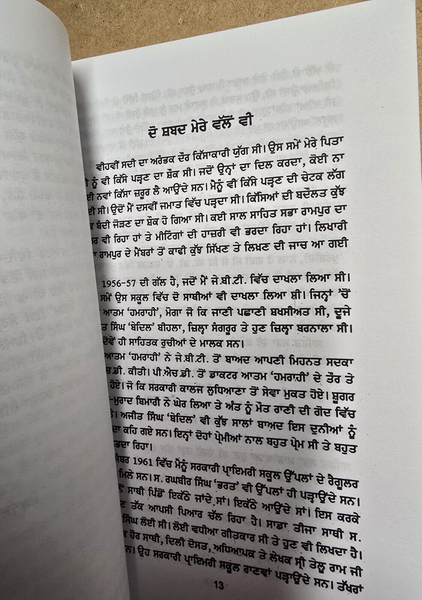 ਦੋ ਸ਼ਬਦ ਮੇਰੇ ਵੱਲੋਂ ਵੀ
ਵੀਹਵੀਂ ਸਦੀ ਦਾ ਅਰੰਭਕ ਦੌਰ ਕਿੱਸਾਕਾਰੀ ਯੁੱਗ ਸੀ। ਉਸ ਸਮੇਂ ਮੇਰੇ ਪਿਤਾ
ਨੂੰ ਵੀ ਕਿੱਸੇ ਪੜ੍ਹਣ ਦਾ ਸ਼ੌਕ ਸੀ। ਜਦੋਂ ਉਨ੍ਹਾਂ ਦਾ ਦਿਲ ਕਰਦਾ, ਕੋਈ ਨਾ
ਨਵਾਂ ਕਿੱਸਾ ਜ਼ਰੂਰ ਲੈ ਆਉਂਦੇ ਸਨ। ਮੈਨੂੰ ਵੀ ਕਿੱਸੇ ਪੜ੍ਹਣ ਦੀ ਚੇਟਕ ਲੱਗ
ਸੀ। ਉਦੋਂ ਮੈਂ ਦਸਵੀਂ ਜਮਾਤ ਵਿੱਚ ਪੜ੍ਹਦਾ ਸੀ। ਕਿੱਸਿਆਂ ਦੀ ਬਦੌਲਤ ਕੁੱਝ
ਬੰਦੀ ਜੋੜਣ ਦਾ ਸ਼ੌਕ ਹੋ ਗਿਆ ਸੀ। ਕਈ ਸਾਲ ਸਾਹਿਤ ਸਭਾ ਰਾਮਪੁਰ ਦਾ
ਵੀ ਰਿਹਾ ਹਾਂ ਤੇ ਮੀਟਿੰਗਾਂ ਦੀ ਹਾਜ਼ਰੀ ਵੀ ਭਰਦਾ ਰਿਹਾ ਹਾਂ। ਲਿਖਾਰੀ
ਰਾਮਪੁਰ ਦੇ ਮੈਂਬਰਾਂ ਤੋਂ ਕਾਫੀ ਕੁੱਝ ਸਿੱਖਣ ਤੇ ਲਿਖਣ ਦੀ ਜਾਚ ਆ ਗਈ
1956-57 ਦੀ ਗੱਲ ਹੈ, ਜਦੋਂ ਮੈਂ ਜੇ.ਬੀ.ਟੀ. ਵਿੱਚ ਦਾਖਲਾ ਲਿਆ ਸੀ।
ਸਮੇਂ ਉਸ ਸਕੂਲ ਵਿੱਚ ਦੋ ਸਾਥੀਆਂ ਵੀ ਦਾਖਲਾ ਲਿਆ ਸੀ। ਜਿਨ੍ਹਾਂ 'ਚੋਂ
ਆਤਮ 'ਹਮਰਾਹੀ', ਮੋਗਾ ਜੋ ਕਿ ਜਾਣੀ ਪਛਾਣੀ ਬਖਸੀਅਤ ਸੀ, ਦੂਜੇ
ਸਿੰਘ 'ਬੇਦਿਲ' ਬੀਹਲਾ, ਜ਼ਿਲ੍ਹਾ ਸੰਗਰੂਰ ਤੇ ਹੁਣ ਜ਼ਿਲ੍ਹਾ ਬਰਨਾਲਾ ਸੀ।
ਹੀ ਸਾਹਿਤਕ ਰੁਚੀਆਂ ਦੇ ਮਾਲਕ ਸਨ।
ਆਤਮ 'ਹਮਰਾਹੀ' ਨੇ ਜੇ.ਬੀ.ਟੀ. ਤੋਂ ਬਾਅਦ ਆਪਣੀ ਮਿਹਨਤ ਸਦਕਾ
ਡੀ. ਕੀਤੀ। ਪੀ.ਐਚ.ਡੀ. ਤੋਂ ਡਾਕਟਰ ਆਤਮ 'ਹਮਰਾਹੀ' ਦੇ ਤੌਰ ਤੇ
ਹੋਏ। ਜੋ ਕਿ ਸਰਕਾਰੀ ਕਾਲਜ ਲੁਧਿਆਣਾ ਤੋਂ ਸੇਵਾ ਮੁਕਤ ਹੋਏ। ਸ਼ੂਗਰ
ਮੁਰਾਦ ਬਿਮਾਰੀ ਨੇ ਘੇਰ ਲਿਆ ਤੇ ਅੰਤ ਨੂੰ ਮੌਤ ਰਾਣੀ ਦੀ ਗੋਦ ਵਿੱਚ
ਅਜੀਤ ਸਿੰਘ 'ਬੇਦਿਲ' ਵੀ ਕੁੱਝ ਸਾਲਾਂ ਬਾਅਦ ਇਸ ਦੁਨੀਆਂ ਨੂੰ
ਕਹਿ ਗਏ ਸਨ। ਇਨ੍ਹਾਂ ਦੋਹਾਂ ਪ੍ਰੇਮੀਆਂ ਨਾਲ ਬਹੁਤ ਪ੍ਰੇਮ ਸੀ ਤੇ ਬਹੁਤ
ਰਿਹਾ।
1961 ਵਿੱਚ ਮੈਨੂੰ ਸਰਕਾਰੀ ਪ੍ਰਾਇਮਰੀ ਸਕੂਲ ਉੱਪਲਾਂ ਦੇ ਰੈਗੂਲਰ
ਮਿਲੇ ਸਨ। ਸ. ਰਘਬੀਰ ਸਿੰਘ 'ਭਰਤ' ਵੀ ਉੱਪਲਾਂ ਹੀ ਪੜ੍ਹਾਉਂਦੇ ਸਨ।
ਸਾਥੀ ਪਿੰਡੋਂ ਇਕੱਠੇ ਜਾਂਦੇ ਸਾਂ। ਇਕੱਠੇ ਆਉਂਦੇ ਸਾਂ। ਇਸ ਕਰਕੇ
ਤੱਕ ਆਪਸੀ ਪਿਆਰ ਚੱਲ ਰਿਹਾ ਹੈ। ਸਾਡਾ ਤੀਜਾ ਸਾਥੀ ਸ.
ਸਿੰਘ ਲੋਈ ਸੀ। ਲੋਈ ਵਧੀਆ ਗੀਤਕਾਰ ਸੀ ਤੇ ਹੁਣ ਵੀ ਲਿਖਦਾ ਹੈ।
ਹੋਰ ਸਾਥੀ, ਦਿਲੀ ਦੋਸਤ, ਅਧਿਆਪਕ ਤੇ ਲੇਖਕ ਸ੍ਰੀ ਤੇਲੂ ਰਾਮ ਜੀ
ਉਹ ਸਰਕਾਰੀ ਪ੍ਰਾਇਮਰੀ ਸਕੂਲ ਰਾਣਵਾਂ ਪੜ੍ਹਾਉਂਦੇ ਸਨ। ਤੱਖਰਾਂ
13